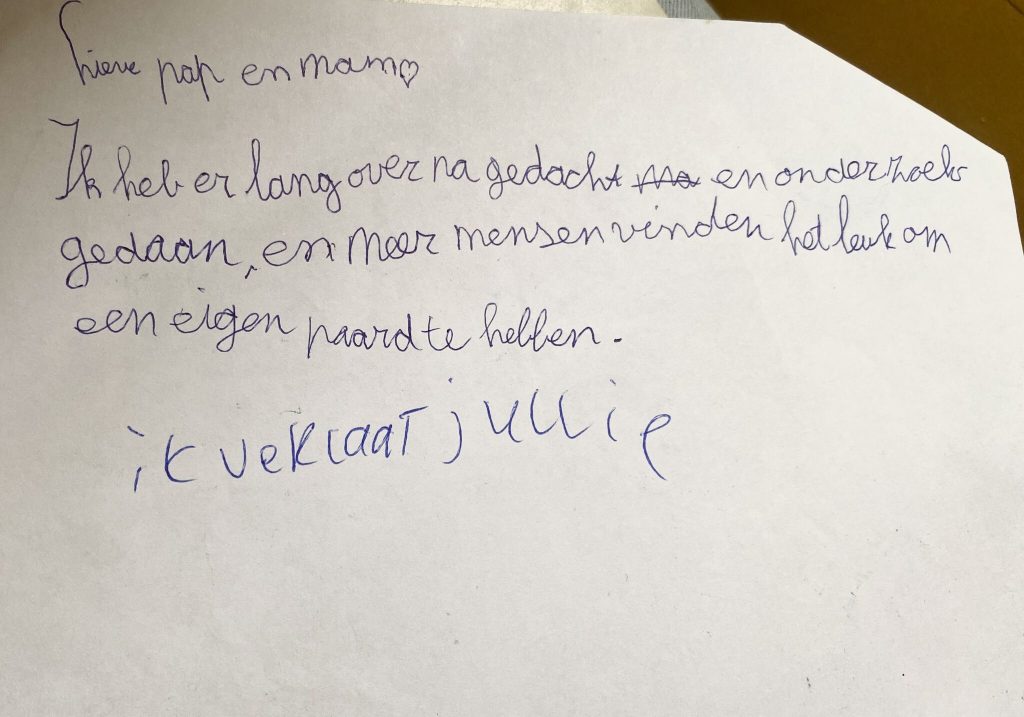 Lieve pap en mam♡
Ik heb er lang over na gedacht ma en onderzoek
gedaan, en meer mensen vinden het leuk om
een eigen paard te hebben.
ik veklaat jullie